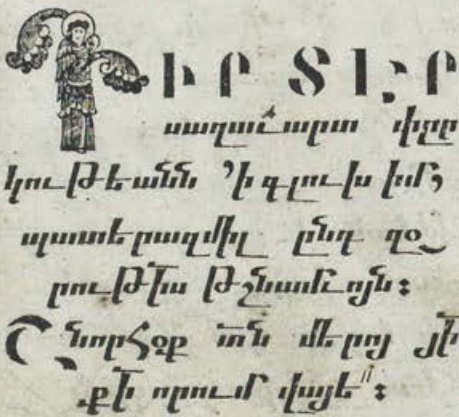 ԴԻՐ ՏԷՐ
սաղաւարտ փըր
կութեանն ՚ի գլուխ իմ,
պատերազմիլ ընդ զօ
րութե թշնամւոյն։
Շնորհօք տն մերոյ յի
քի որում վայե՛՛։